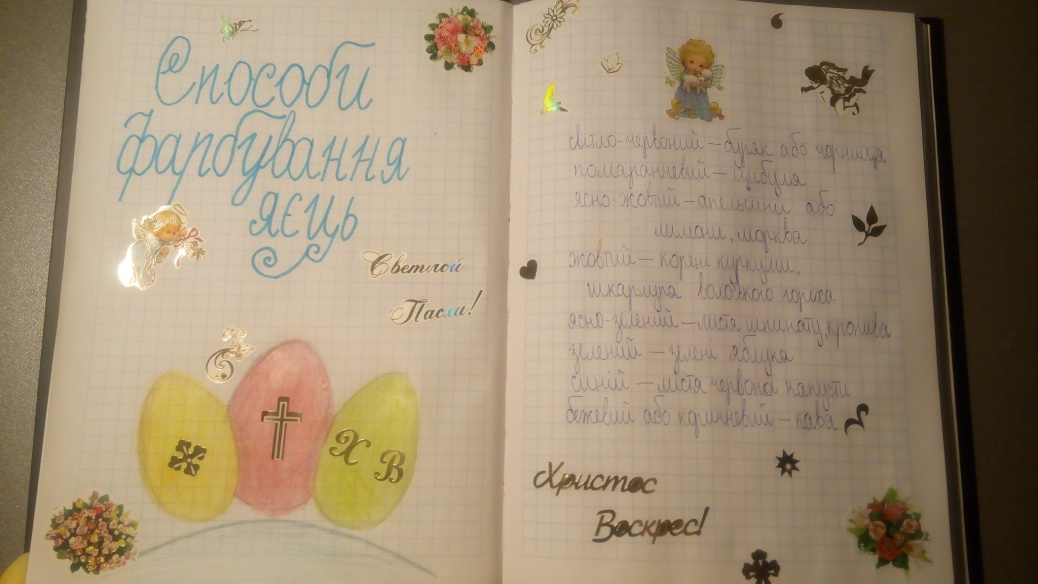 Способи
фарбування
яєць
Светлой
Пасхи!
Х В
світло-червоний – буряк або чорниця
помаранчевий – цибуля
ясно-жовтий – апельсини або
лимони, морква
жовтий – корені куркуми,
шкарлупа волоського горіха
ясно-зелений – листя шпинату, кропива
зелений – зелені яблука
синій – листя червоної капусти
бежевий або коричневий – кава
Христос
Воскрес!